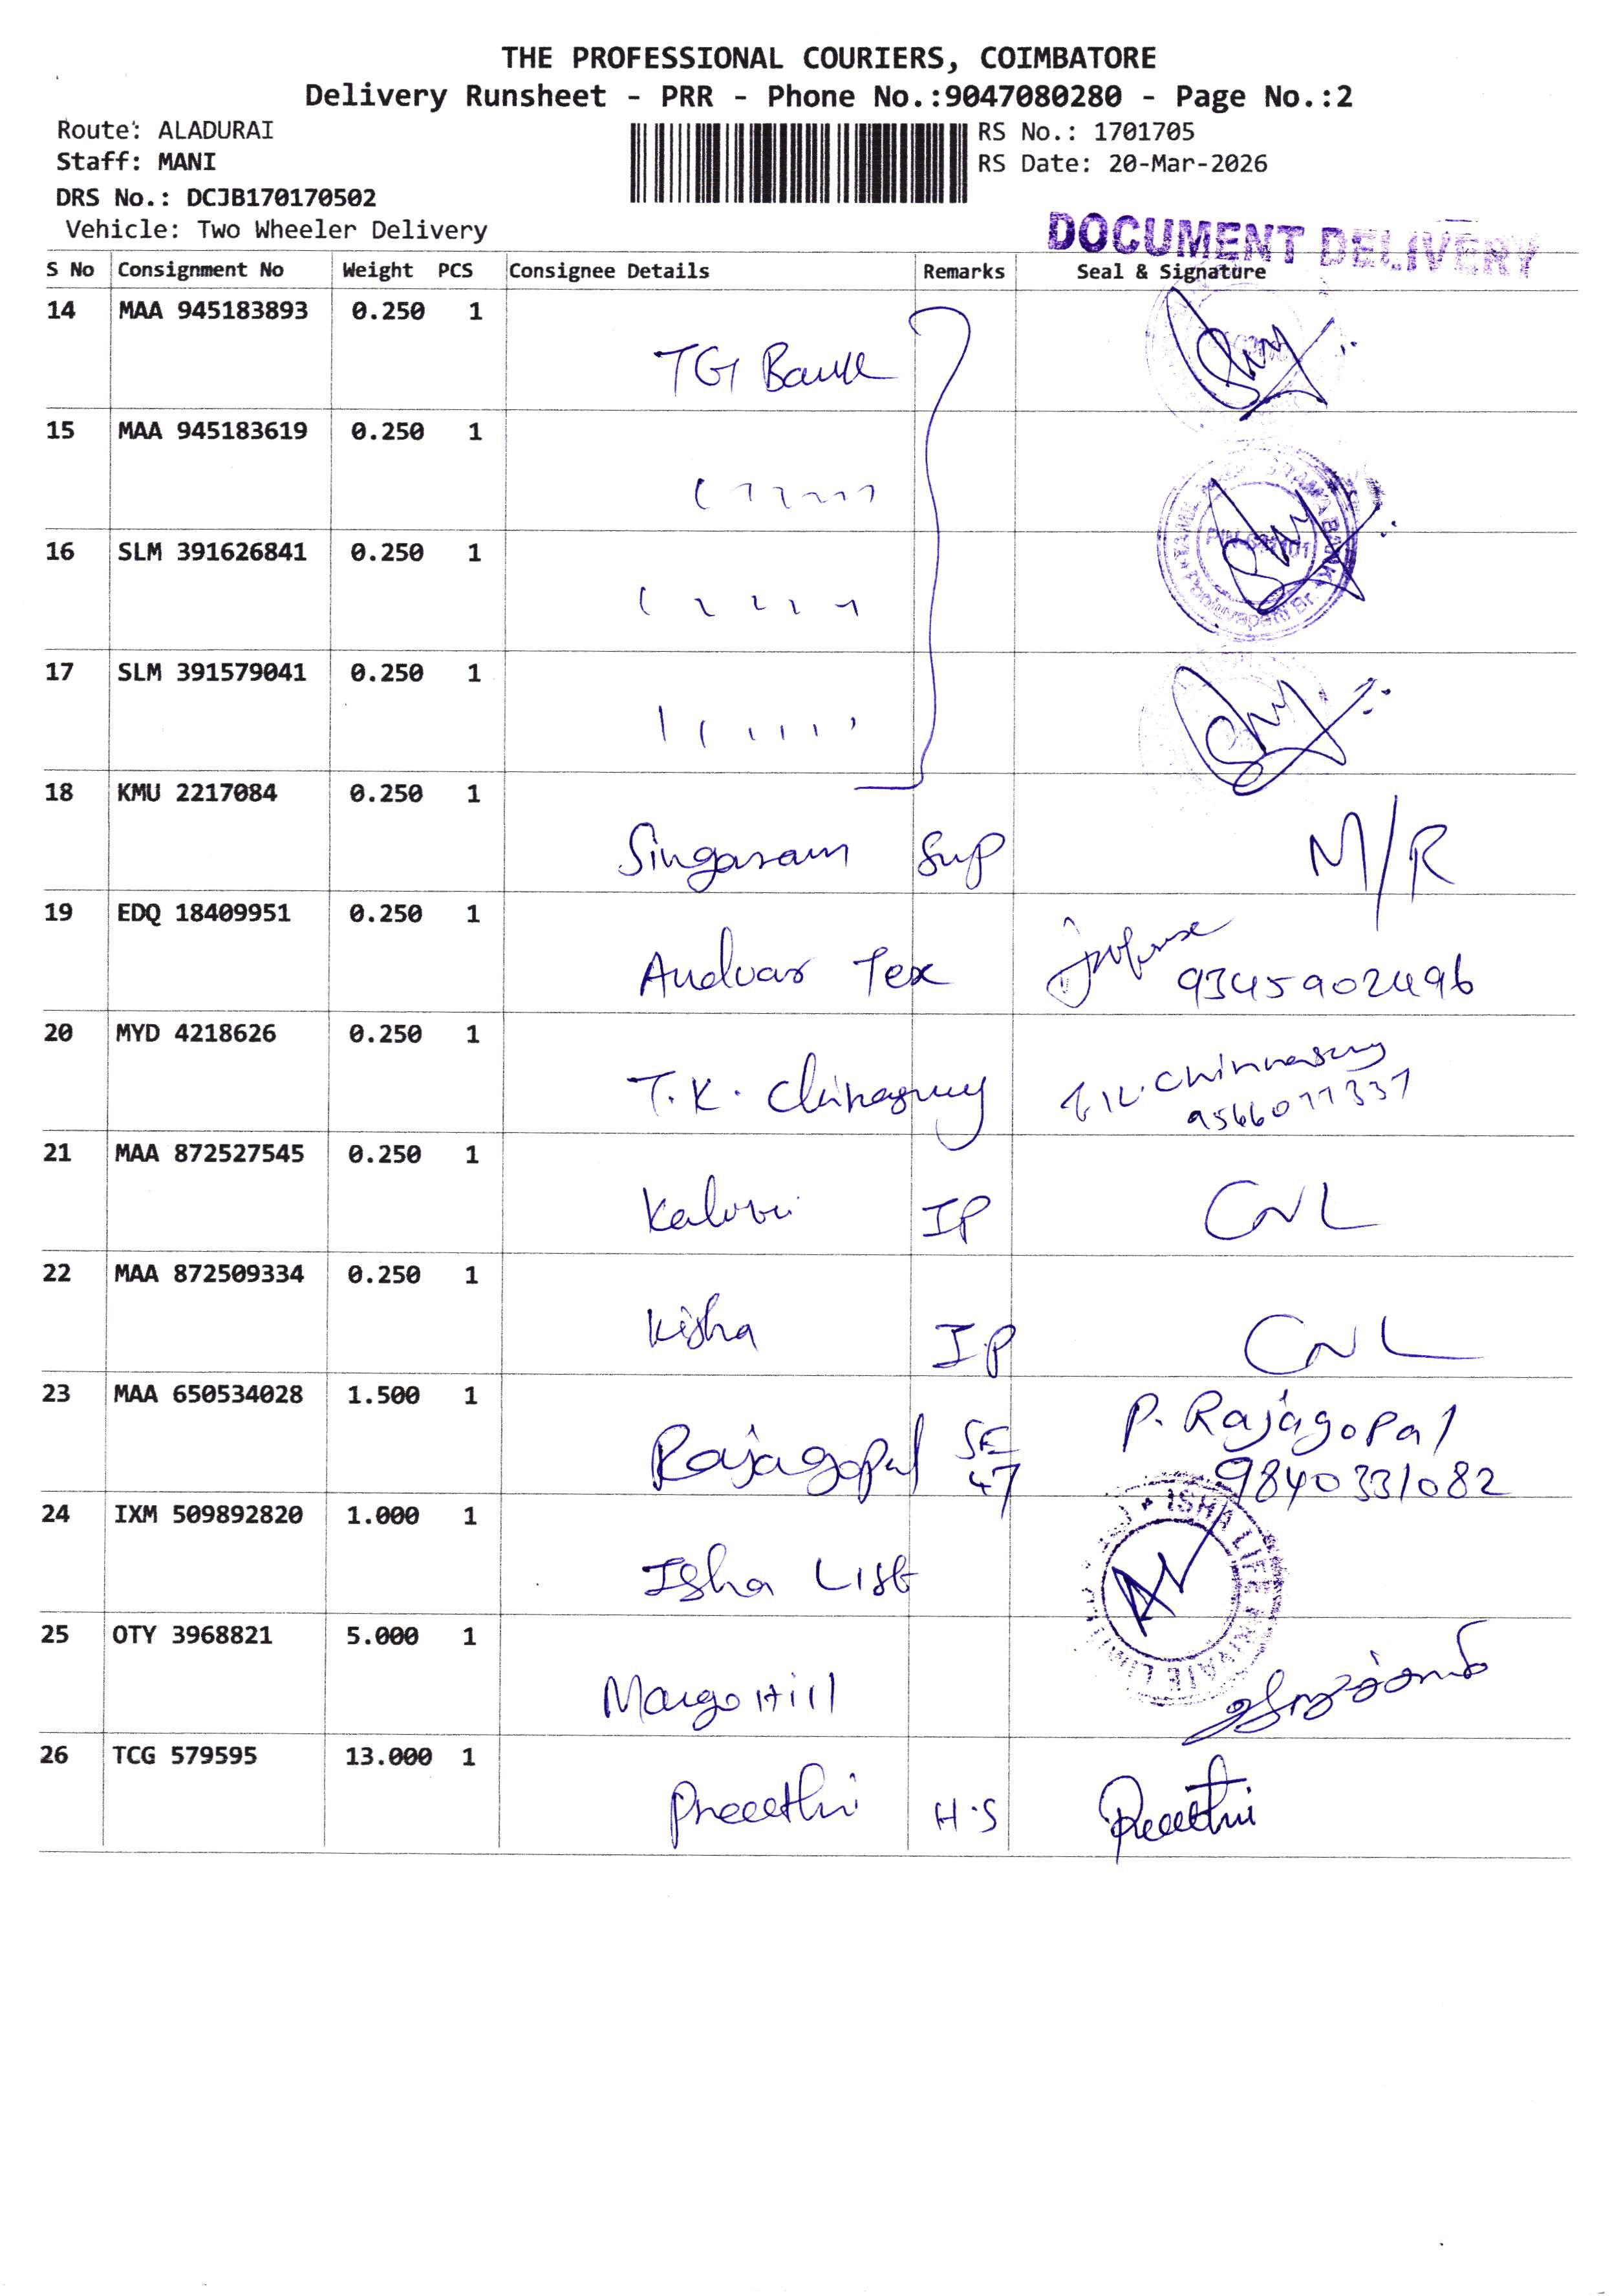 THE PROFESSIONAL COURIERS, COIMBATORE
Delivery Runsheet - PRR - Phone No.:9047080280 - Page No.:2
Route: ALADURAI
RS No.: 1701705
Staff: MANI
RS Date: 20-Mar-2026
DRS No.: DCJB170170502
Vehicle: Two Wheeler Delivery
DOCUMENT DELIVERY
S No Consignment No Weight PCS Consignee Details Remarks Seal & Signature
14 MAA 945183893 0.250 1
TGI Bank
15 MAA 945183619 0.250 1
16 SLM 391626841 0.250 1
17 SLM 391579041 0.250 1
18 KMU 2217084 0.250 1
Singaram Sup M/R
19 EDQ 18409951 0.250 1
Andvar Tex 9345902496
20 MYD 4218626 0.250 1
T.K. Chinnasamy
9566077337
21 MAA 872527545 0.250 1
IP CNL
22 MAA 872509334 0.250 1
Kisha IP CNL
23 MAA 650534028 1.500 1
Rajagopal SE 47 P. Rajagopal
9840331082
24 IXM 509892820 1.000 1
Isha ISHA LIFE PRIVATE LIMITED
25 OTY 3968821 5.000 1
Margo Hill
26 TCG 579595 13.000 1
Preeethi H.S Preeethi